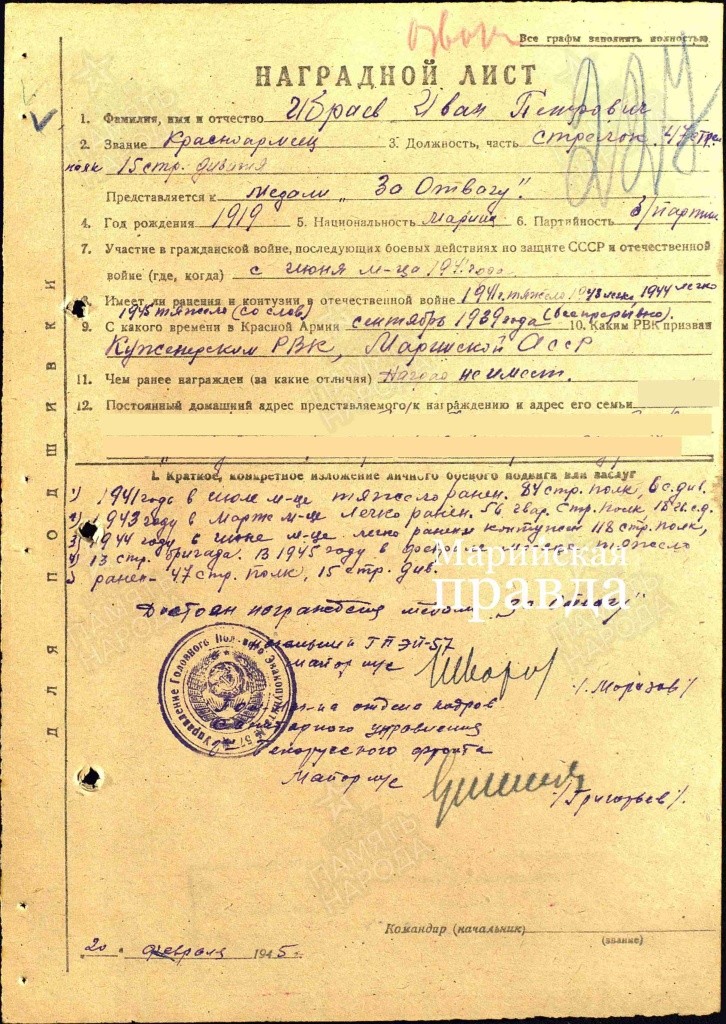 Все графы заполнять полностью
НАГРАДНОЙ ЛИСТ
1. Фамилия, имя и отчество Ибраев Иван Петрович
2. Звание Красноармеец 3. Должность, часть стрелок 47 стрел
15 стр. дивизия
Представляется к медали „За Отвагу".
4. Год рождения 1919 5. Национальность 6. Партийность б/партии
7. Участие в гражданской войне, последующих боевых действиях по защите СССР и отечественной
войне (где, когда) с июня м-ца 1941 года
8. Имеет ли ранения и контузии в отечественной войне 1941г. тяжело 1943 легко 1944 легко
1945 тяжело (со слов)
9. С какого времени в Красной Армии сентябрь 1939 года (беспрерывно). 10. Каким РВК призван
Куженерском РВК, Марийской АССР
11. Чем ранее награжден (за какие отличия) Наград не имеет.
12. Постоянный домашний адрес представляемого к награждению и адрес его семьи
I. Краткое, конкретное изложение личного боевого подвига или заслуг
1) 1941 году в июле м-це тяжело ранен. 84 стр. полк, 6 с. див.
2) 1943 году в Марте м-це легко ранен. 56 гвар. Стр. Полк 18 гв. с.д.
3) 1944 году в июне м-це легко ранен контужен 118 стр. полк,
4) 13 стр. бригада. В 1945 году в тяжело
ранен - 47 стр. Полк, 15 стр. див.
Марийская
правда
Достоен награждения медали „За Отвагу"
Начальник ГПЭП-57
Майор м/с
/Морозов/
отдела кадров
Санитарного управления
Белорусского фронта
Майор м/с
/Григорьев/.
Управление Головного Полевого Эвакопункта № 57
ДЛЯ ПОДШИВКИ
ПАМЯТЬ
НАРОДА
Командир (начальник)
(звание)
20 февраля 1945 г.